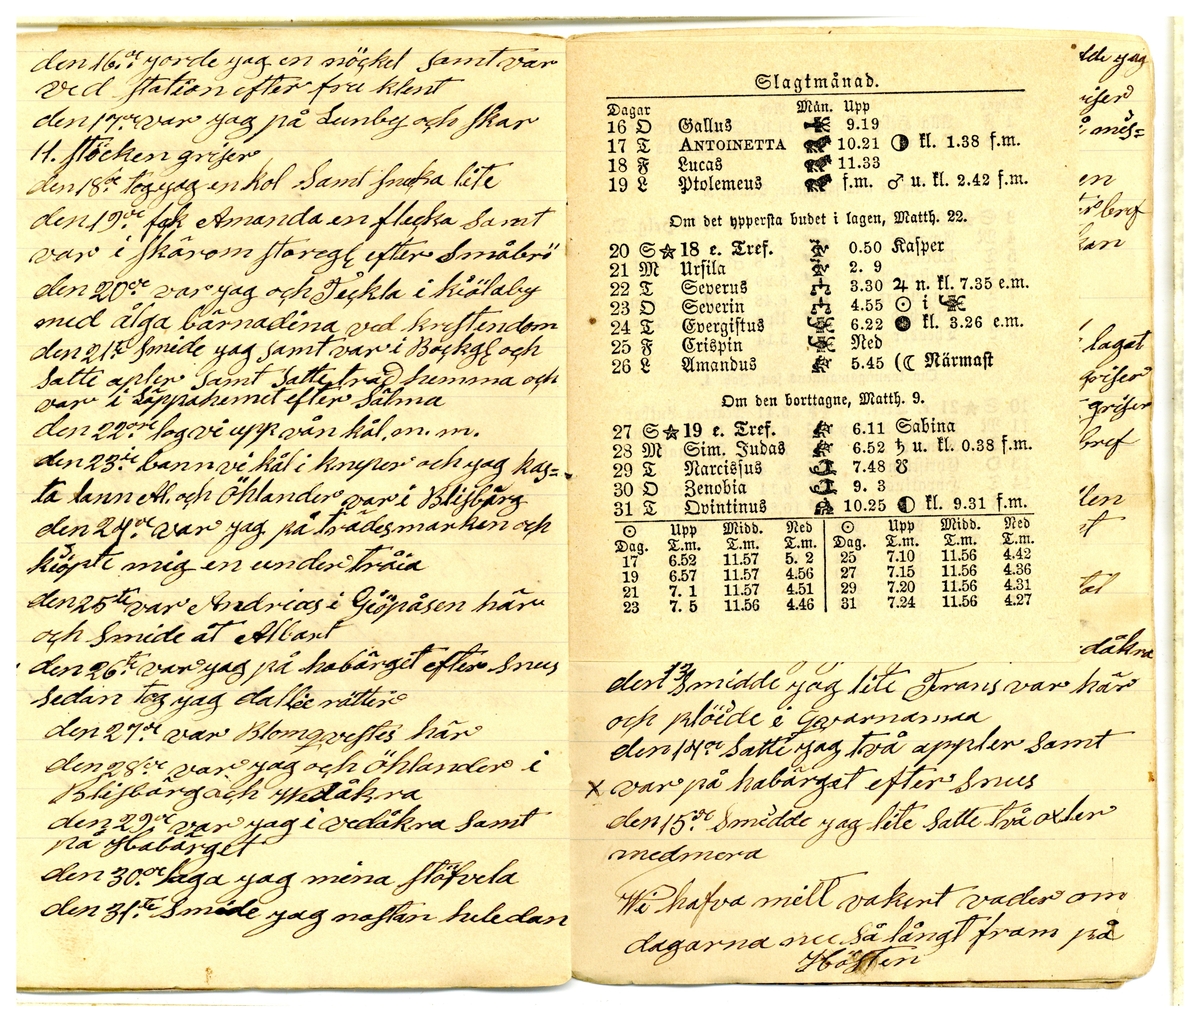 den 16de gorde yag en nöckel samt var
ved station efter fru klent
den 17de var yag på Lunby och skar
H. stöcken griser
den 18de tog yag en kol samt lite
den 19de fek Amanda en flecka samt
var i skärom efter Småbrö
den 20de var yag och Teckla i kiölaby
med älga bärnadina ved kristendom
den 21te smide yag samt var i och
satte apler samt satte träd hemma och
var i Läppahemet efter Sälma
den 22dre tog vi upp vån kål, m. m.
den 23ie bann vi kål i knyper och yag kas=
ta lann Al. och Öhlander var i Blisbärg
den 24de var yag på trädesmarken och
kiöpte mig en under tröia
den 25te var Andrias i Giöpåsen här
och smide åt Albart
den 26te var yag på habärget efter snus
sedan tog yag dallie rötter
den 27de var Blomqvestes här
den 28de var yag och Öhlander i
Blisbärg och Vedåkra
den 29de var yag i vedåkra samt
på Habärget
den 30de laga yag mina stöfvela
den 31te Smide yag nastan hele dan
Slagtmånad.
Dagar Mån. Upp
16 O Gallus 9.19
17 T ANTOINETTA 10.21 ◑ kl. 1.38 f.m.
18 F Lucas 11.33
19 L Ptolemeus f.m. ♂ u. kl. 2.42 f.m.
Om det yppersta budet i lagen, Matth. 22.
20 S ★ 18 e. Tref. 0.50 Kasper
21 M Ursila 2. 9
22 T Severus 3.30 ♃ n. kl. 7.35 e.m.
23 O Severin 4.55 ☉ i
24 T Evergistus 6.22 ● kl. 3.26 e.m.
25 F Crispin Ned
26 L Amandus 5.45 (☾ Närmast
Om den borttagne, Matth. 9.
27 S ★ 19 e. Tref. 6.11 Sabina
28 M Sim. Judas 6.52 ♄ u. kl. 0.38 f.m.
29 T Narcissus 7.48 ☋
30 O Zenobia 9. 3
31 T Qvintinus 10.25 ◐ kl. 9.31 f.m.
☉ Upp Midd. Ned ☉ Upp Midd. Ned
Dag. T.m. T.m. T.m. Dag. T.m. T.m. T.m.
17 6.52 11.57 5. 2 25 7.10 11.56 4.42
19 6.57 11.57 4.56 27 7.15 11.56 4.36
21 7. 1 11.57 4.51 29 7.20 11.56 4.31
23 7. 5 11.56 4.46 31 7.24 11.56 4.27
den 13 smidde yag lite Frans var här
och plöide i Qvarnamaa
den 14de satte yag två appler samt
x var på habärgat efter snus
den 15de smidde yag lite satte två oxler
medmera
Wi hafva mill vakert vader om
dagarna nu så långt fram på
Hösten
yag
griser
bref
lagat
griser
griser
bref
dåkra